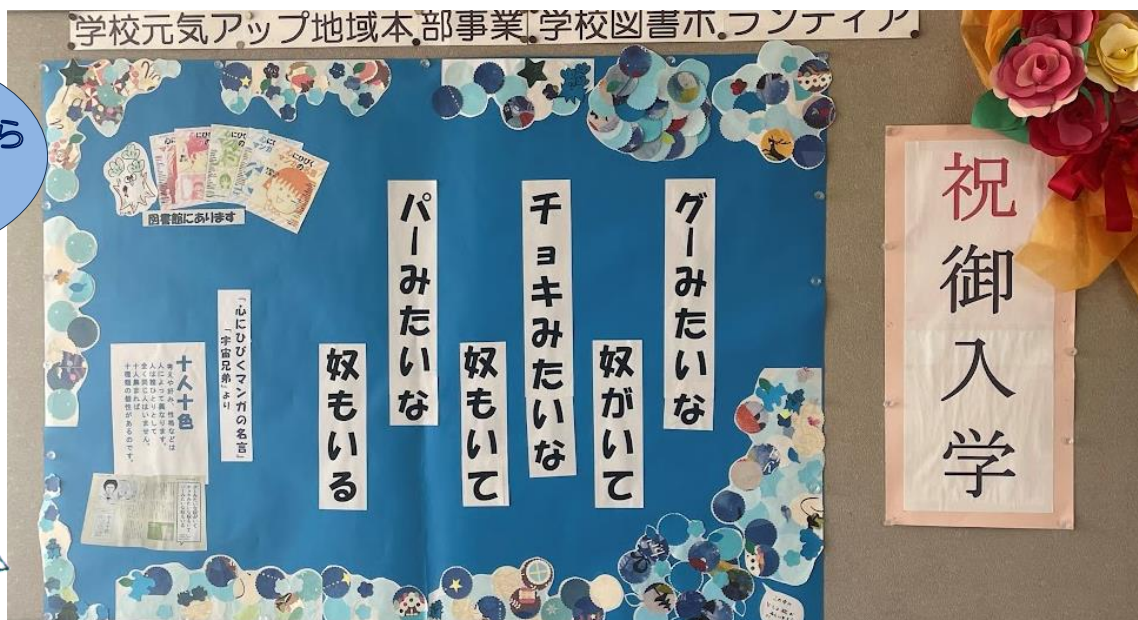 学校元気アップ地域本部事業 学校図書ボランティア
ら
祝御入学
グーみたいな
奴がいて
チョキみたいな
奴もいて
パーみたいな
奴もいる
『心にひびくマンガの名言』
「宇宙兄弟」より
十人十色
考えや好み、性格などは
人によって異なります。
人は誰ひとりとして
全く同じ人はいません。
十人集まれば
十種類の個性があるのです。
図書館にあります